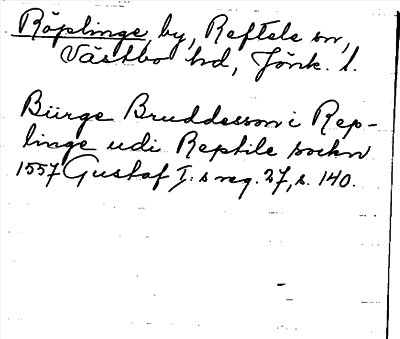 Röplinge, by, Reftele sn,
Västbo hd, Jönk. l.
Bürge Bruddesson i Rep-
linge udi Reptile sockn
1557 Gustaf I. s reg. 27, s. 140.